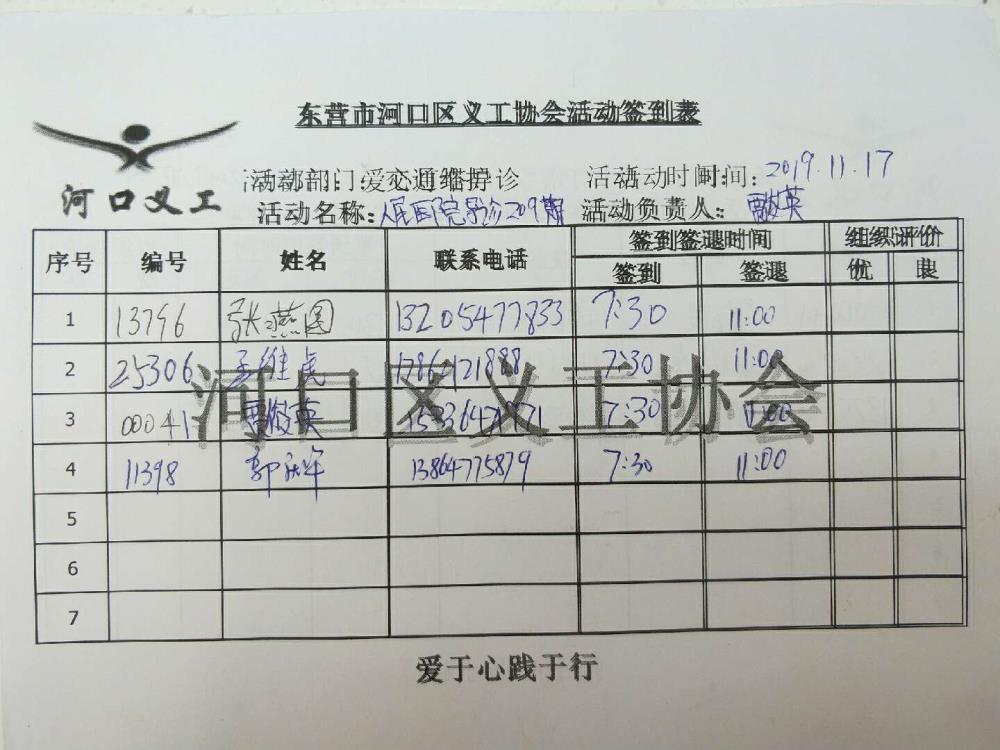 东营市河口区义工协会活动签到表
河口义工
活动部门：爱心导诊 活动时间：2019.11.17
活动名称：人民医院导诊209期 活动负责人：贾俊英
序号 编号 姓名 联系电话 签到签退时间 组织评价
签到 签退 优 良
1 13796 张燕国 13205477833 7:30 11:00
2 25306 王维虎 7:30 11:00
3 00041 贾俊英 7:30 11:00
4 11398 郭庆军 13864775879 7:30 11:00
5
6
7
河口区义工协会
爱于心践于行